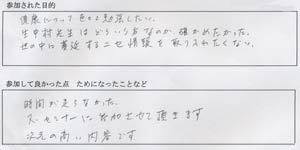 参加された目的
健康について色々と勉強したい。
生中村先生はどういう方なのか、確かめたかった。
世の中に蔓延するニセ情報を取り入れたくない。
参加して良かった点　ためになったことなど
時間が足らなかった。
又、セミナーに参加させて頂きます
次元の高い内容です。